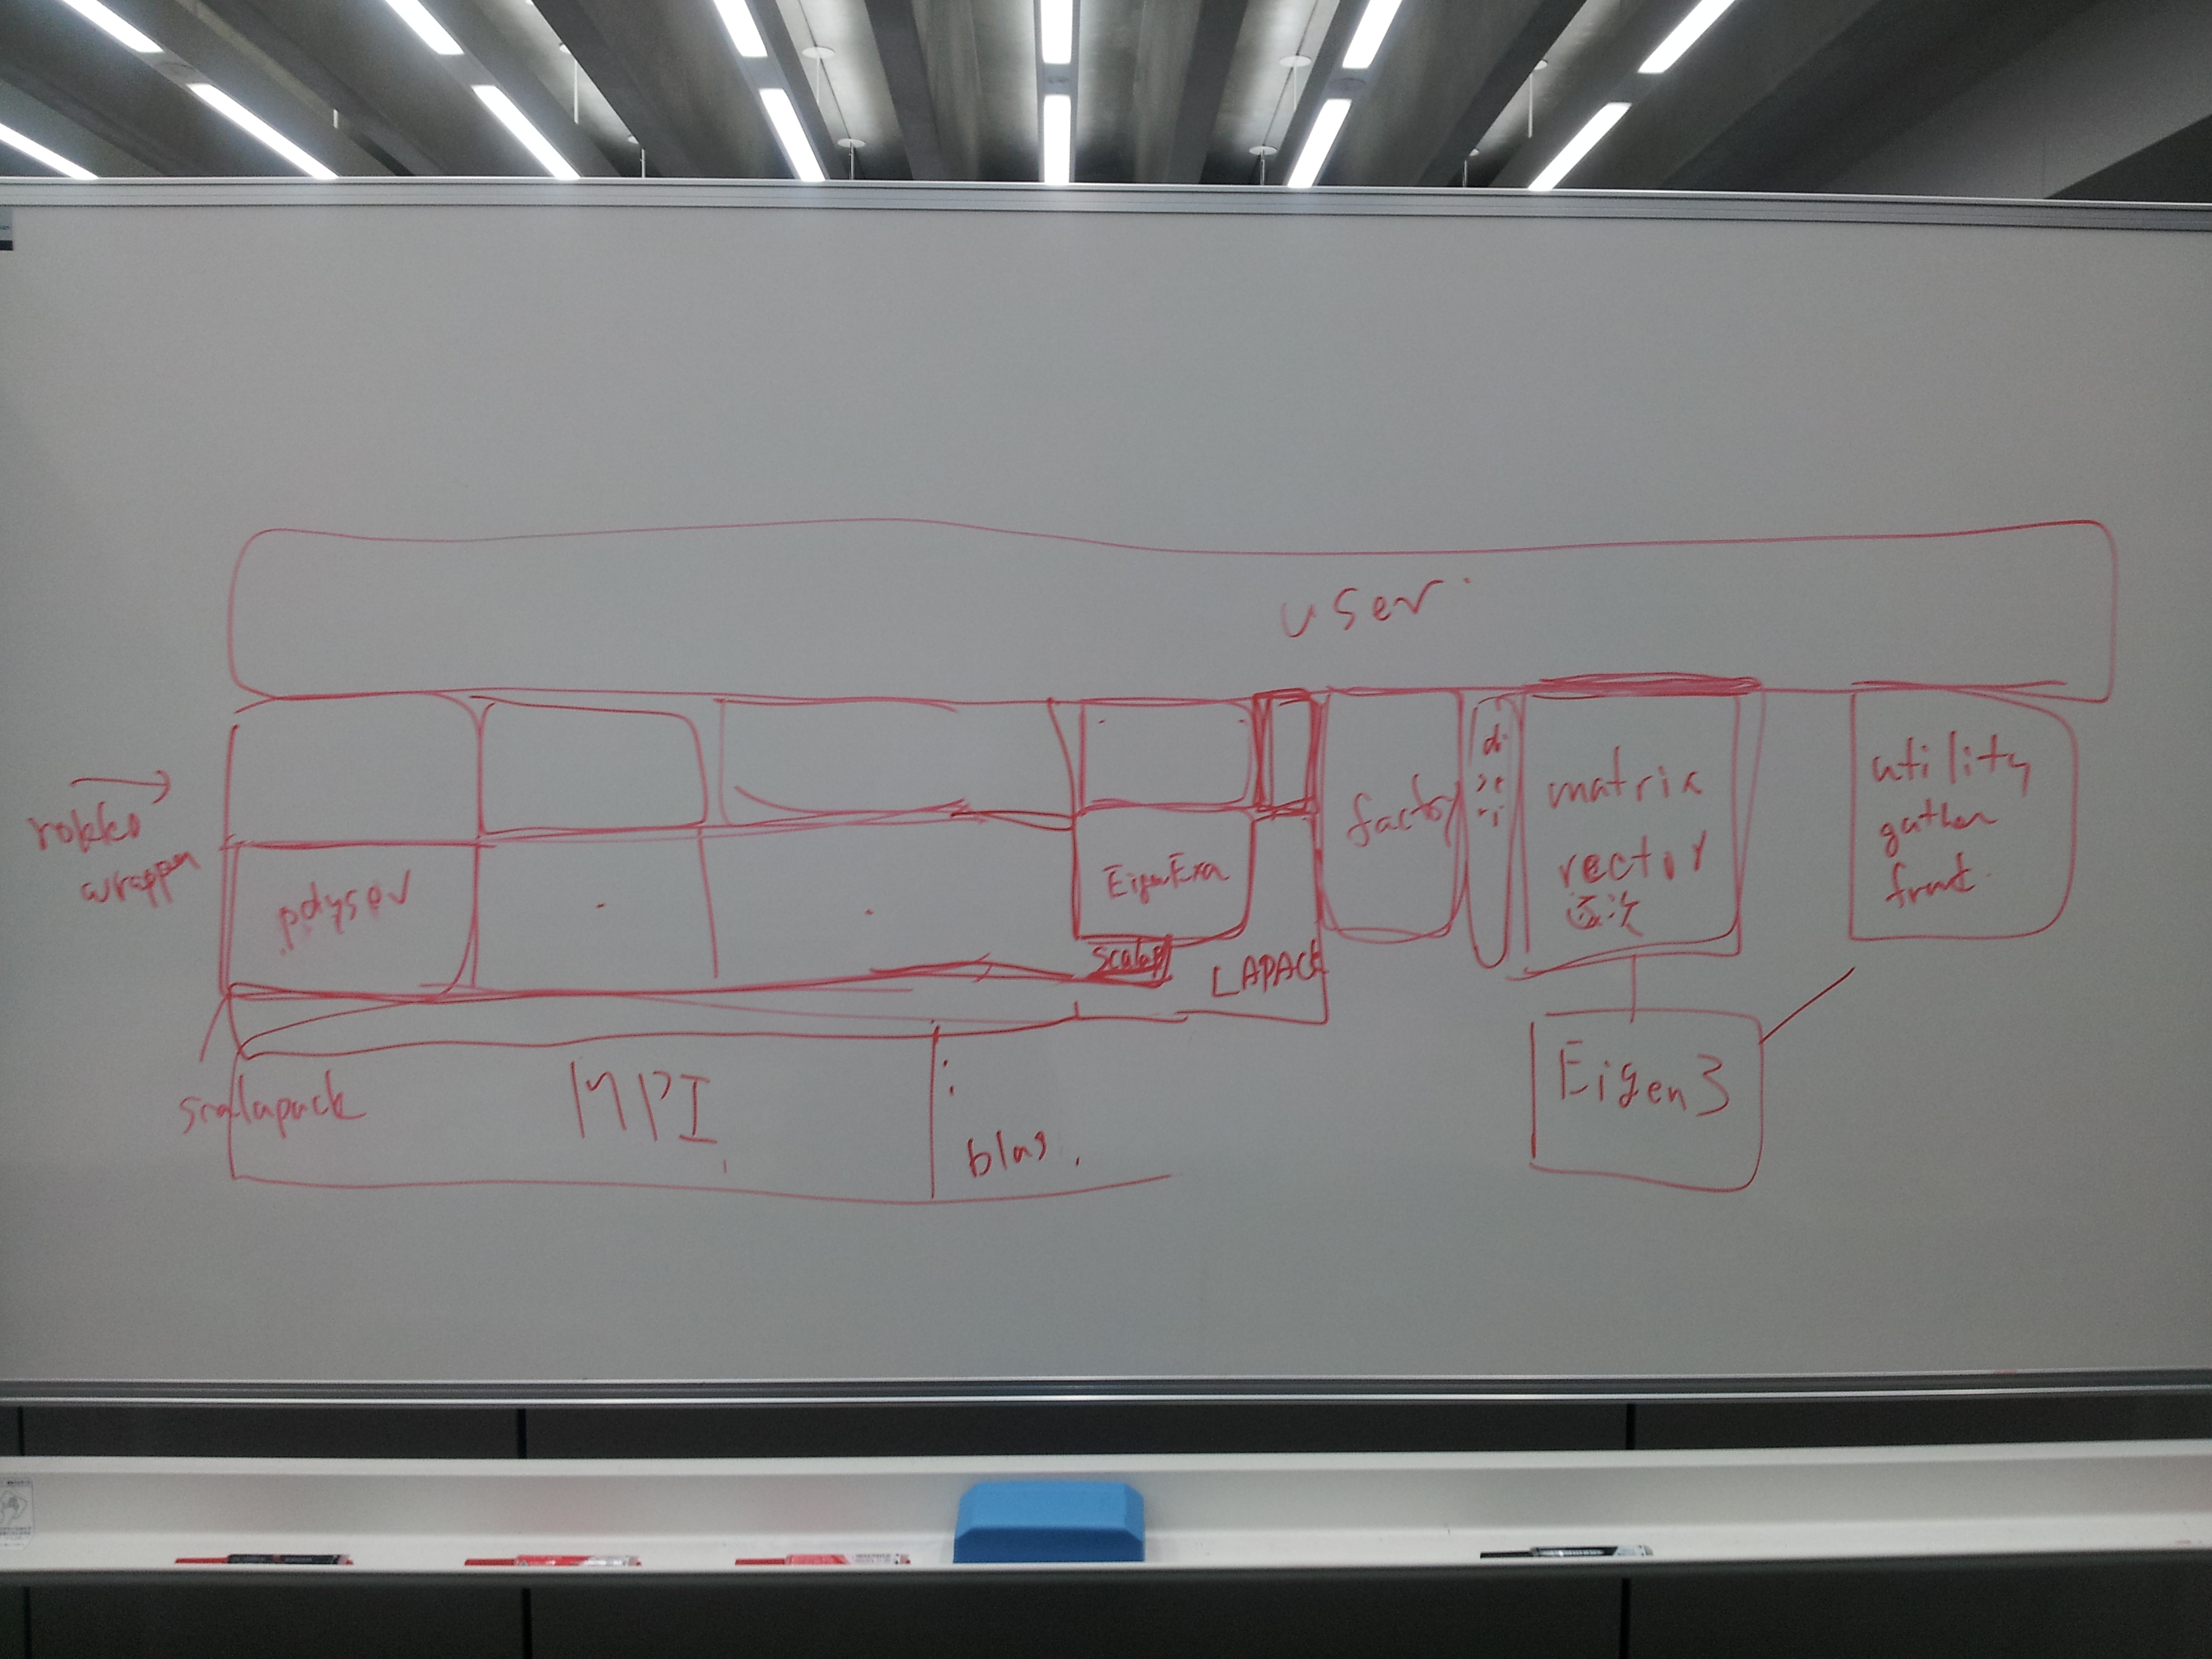 user
rokko
wrapper
pdysev
EigenExa
scalap
LAPACK
factory
di
matrix
vector
逐次
utility
gather
scalapack
MPI
blas.
Eigen3